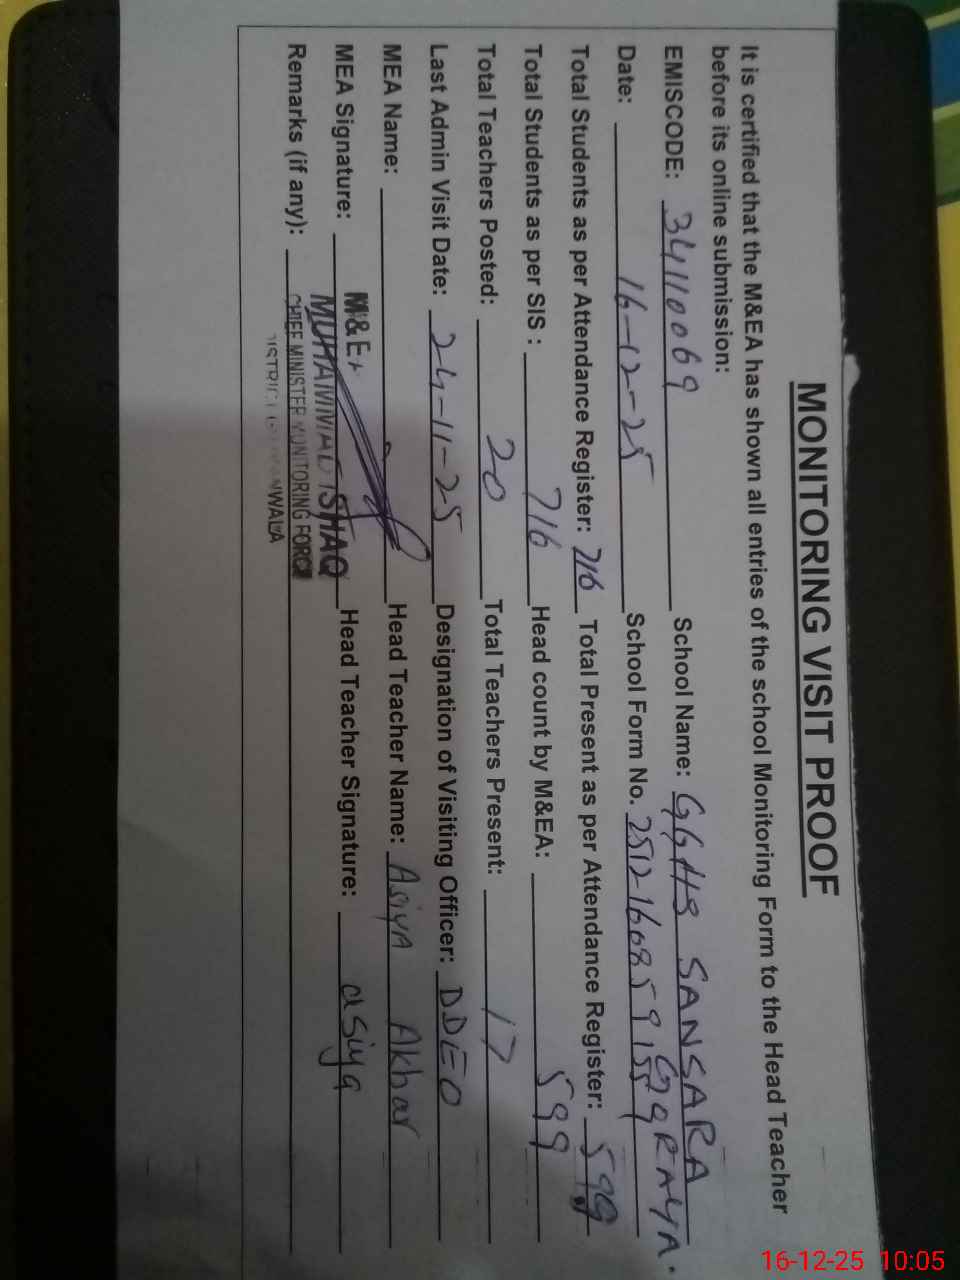 MONITORING VISIT PROOF
It is certified that the M&EA has shown all entries of the school Monitoring Form to the Head Teacher
before its online submission:
EMISCODE: 34110069 School Name: GGHS SANSARA
GORAYA.
Date: 16-12-25 School Form No. 2512160859155
Total Students as per Attendance Register: 716 Total Present as per Attendance Register: 599
Total Students as per SIS : 716 Head count by M&EA: 599
Total Teachers Posted: 20 Total Teachers Present: 17
Last Admin Visit Date: 24-11-25 Designation of Visiting Officer: DDEO
MEA Name: Head Teacher Name: Asiya Akhar
MEA Signature: M&E Head Teacher Signature: asiya
MUHAMMAD ISHAQ
Remarks (if any): CHIEF MINISTER MONITORING FORCE
16-12-25 10:05